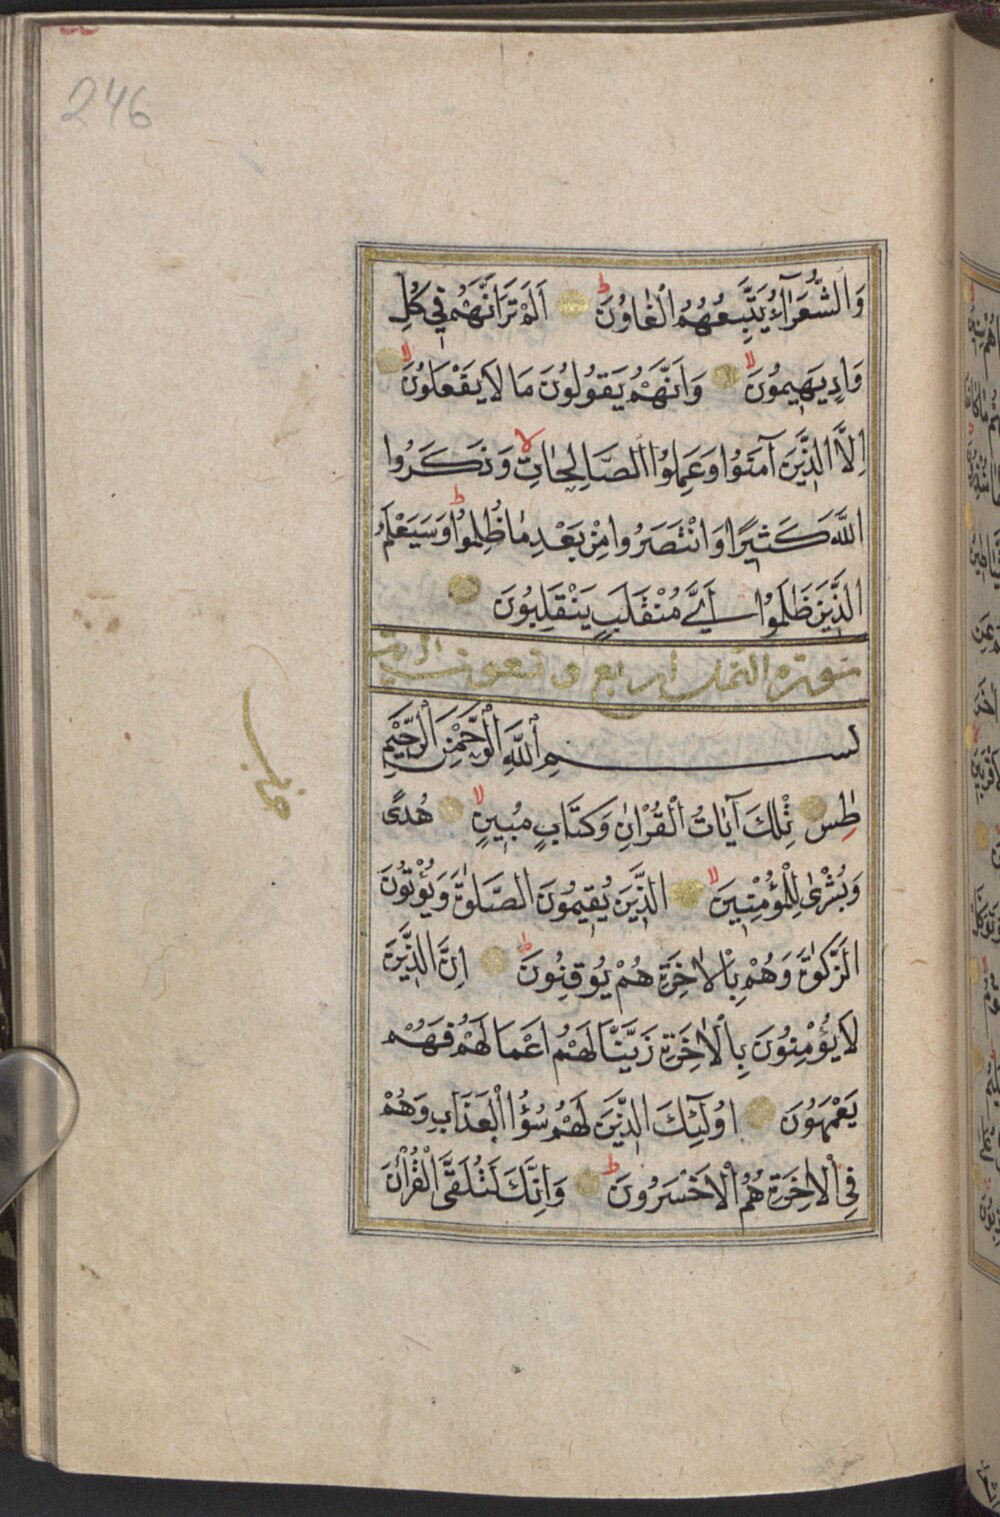 246
وَالشُّعَرَآءُ يَتَّبِعُهُمُ الْغَاوُنَ ط اَلَمْ تَرَ اَنَّهُمْ فِي كُلِّ
وَادٍ يَهِيمُونَ لا وَاَنَّهُمْ يَقُولُونَ مَا لَا يَفْعَلُونَ لا
اِلَّا الَّذِينَ آمَنُوا وَعَمِلُوا الصَّالِحَاتِ لا وَذَكَرُوا
اللّٰهَ كَثِيرًا وَانْتَصَرُوا مِنْ بَعْدِ مَا ظُلِمُوا ط وَسَيَعْلَمُ
الَّذِينَ ظَلَمُوا اَيَّ مُنْقَلَبٍ يَنْقَلِبُونَ
سورة النمل اربع و تسعون اية
بِسْمِ اللّٰهِ الرَّحْمٰنِ الرَّحِيمِ
طٰسٓ تِلْكَ آيَاتُ الْقُرْاٰنِ وَكِتَابٍ مُبِينٍ لا هُدًى
وَبُشْرٰى لِلْمُؤْمِنِينَ لا الَّذِينَ يُقِيمُونَ الصَّلٰوةَ وَيُؤْتُونَ
الزَّكٰوةَ وَهُمْ بِالْاٰخِرَةِ هُمْ يُوقِنُونَ ط اِنَّ الَّذِينَ
لَا يُؤْمِنُونَ بِالْاٰخِرَةِ زَيَّنَّا لَهُمْ اَعْمَالَهُمْ فَهُمْ
يَعْمَهُونَ اُولٰٓئِكَ الَّذِينَ لَهُمْ سُوٓءُ الْعَذَابِ وَهُمْ
فِي الْاٰخِرَةِ هُمُ الْاَخْسَرُونَ ط وَاِنَّكَ لَتُلَقَّى الْقُرْاٰنَ
حزب